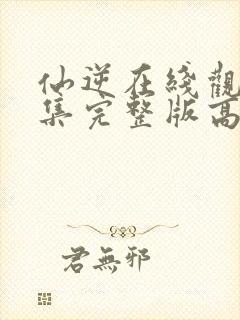 仙逆在綫觀
集完整版高
君無邪